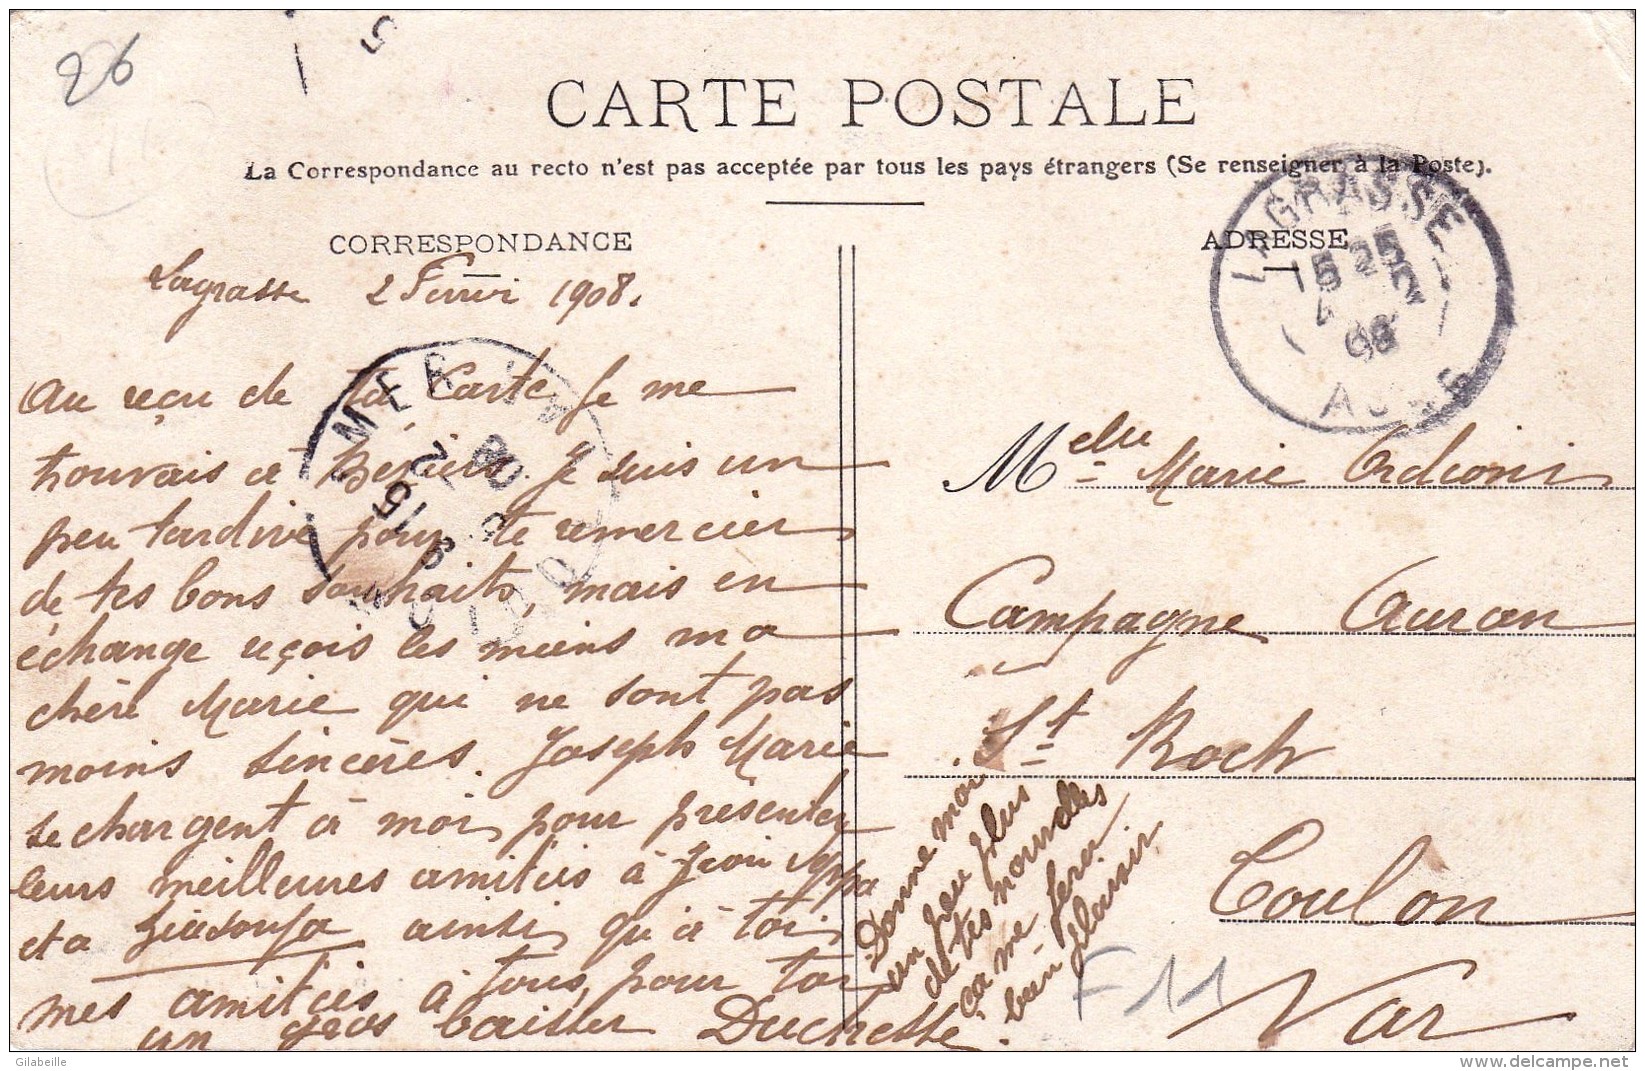 26
CARTE POSTALE
La Correspondance au recto n'est pas acceptée par tous les pays étrangers (Se renseigner à la Poste).
CORRESPONDANCE
Lagrasse 2 Fevrier 1908.
Au reçu de ta Carte Je me
trouvais à Béziers. Je suis un
peu tardive pour te remercier
de tes bons souhaits, mais en
échange reçois les miens ma
chère Marie qui ne sont pas
moins sincères. Joseph Marie
se chargent à moi pour presenter
leurs meilleures amitiés à
et a ainsi qu'à toi
mes amitiés à tous, pour toi
un gros baiser Duchesse.
Donne moi
un peu plus
de tes nouvelles
ça me fera
bien plaisir
ADRESSE
LAGRASSE
15 25
2
08
AUDE
Melle Marie Ordioni
Campagne Auran
St Roch
Toulon
Var
F 11
Gilabeille
www.delcampe.net